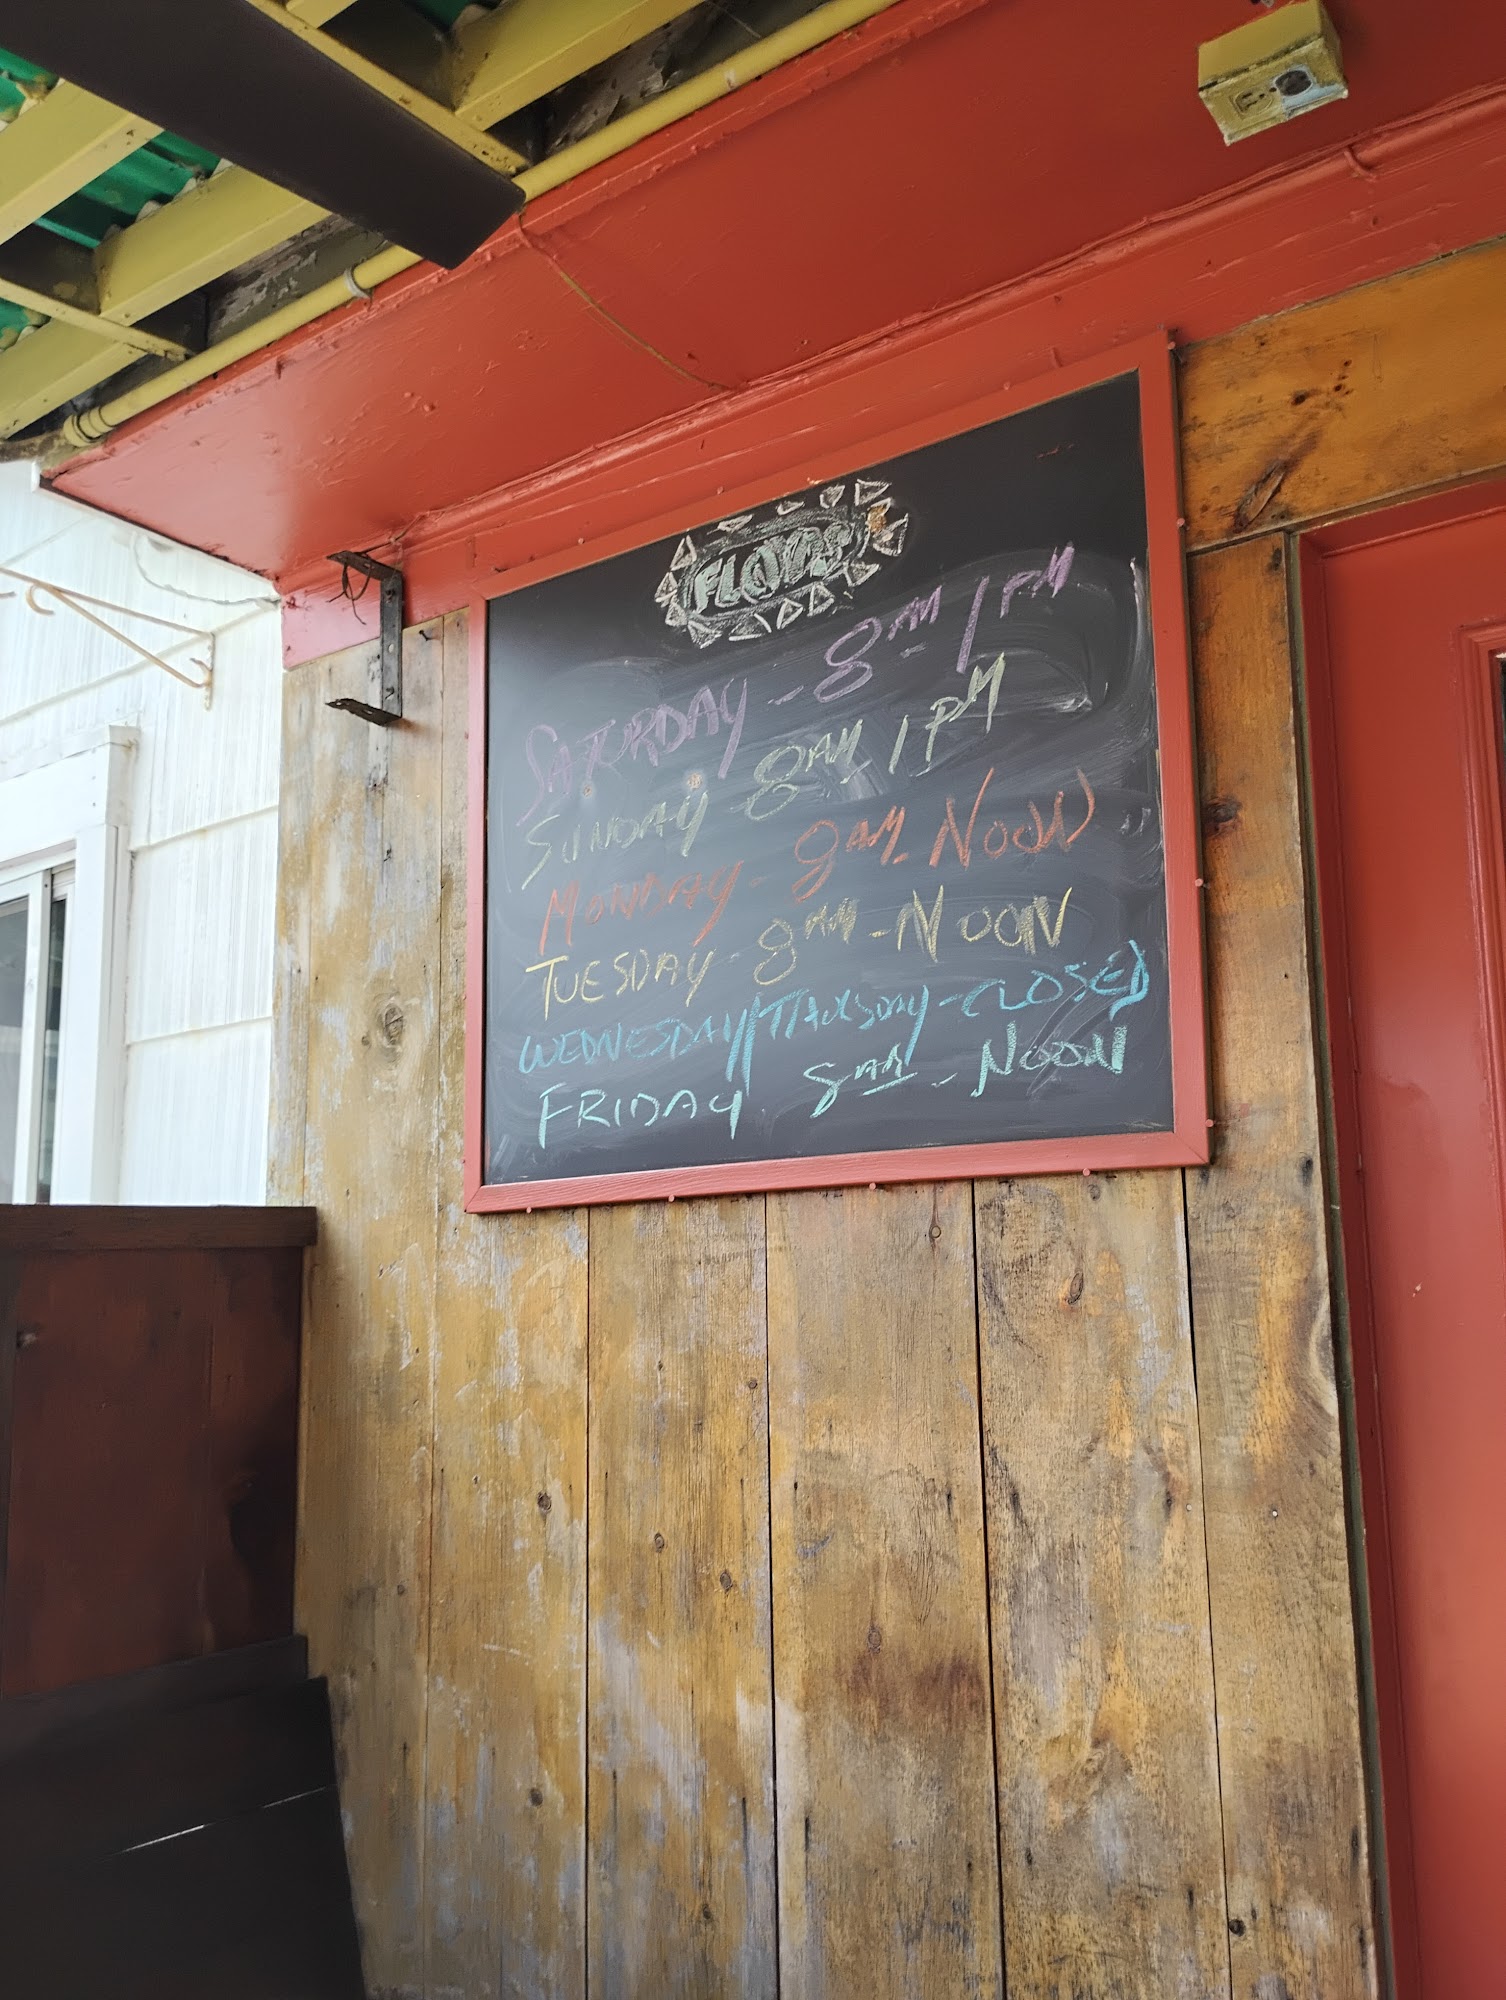 FLOYDS
SATURDAY - 8AM - 1PM
SUNDAY - 8AM 1PM
MONDAY - 8AM - NOON
TUESDAY - 8AM - NOON
WEDNESDAY/THURSDAY - CLOSED
FRIDAY 8AM - NOON